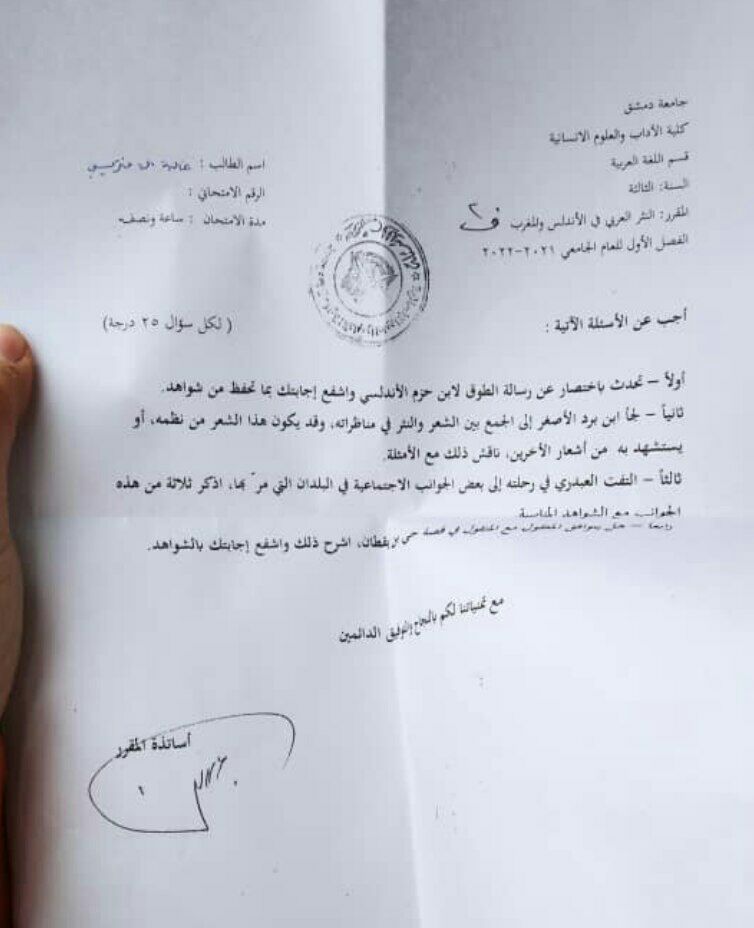 جامعة دمشق
كلية الآداب والعلوم الانسانية
قسم اللغة العربية
السنة: الثالثة
المقرر: النثر العربي في الأندلس والمغرب ف٢
الفصل الأول للعام الجامعي ٢٠٢١-٢٠٢٢
اسم الطالب :
الرقم الامتحاني :
مدة الامتحان : ساعة ونصف
أجب عن الأسئلة الآتية : ( لكل سؤال ٢٥ درجة)
أولاً – تحدث باختصار عن رسالة الطوق لابن حزم الأندلسي واشفع إجابتك بما تحفظ من شواهد.
ثانياً – لجأ ابن برد الأصغر إلى الجمع بين الشعر والنثر في مناظراته، وقد يكون هذا الشعر من نظمه، أو
يستشهد به من أشعار الأخرين، ناقش ذلك مع الأمثلة.
ثالثاً – التفت العبدري في رحلته إلى بعض الجوانب الاجتماعية في البلدان التي مرّ بها، اذكر ثلاثة من هذه
الجوانب مع الشواهد المناسبة
رابعاً – هل يتوافق المعقول مع المنقول في قصة حي بن يقظان، اشرح ذلك واشفع إجابتك بالشواهد.
مع تمنياتنا لكم بالنجاح والتوفيق الدائمين
أساتذة المقرر